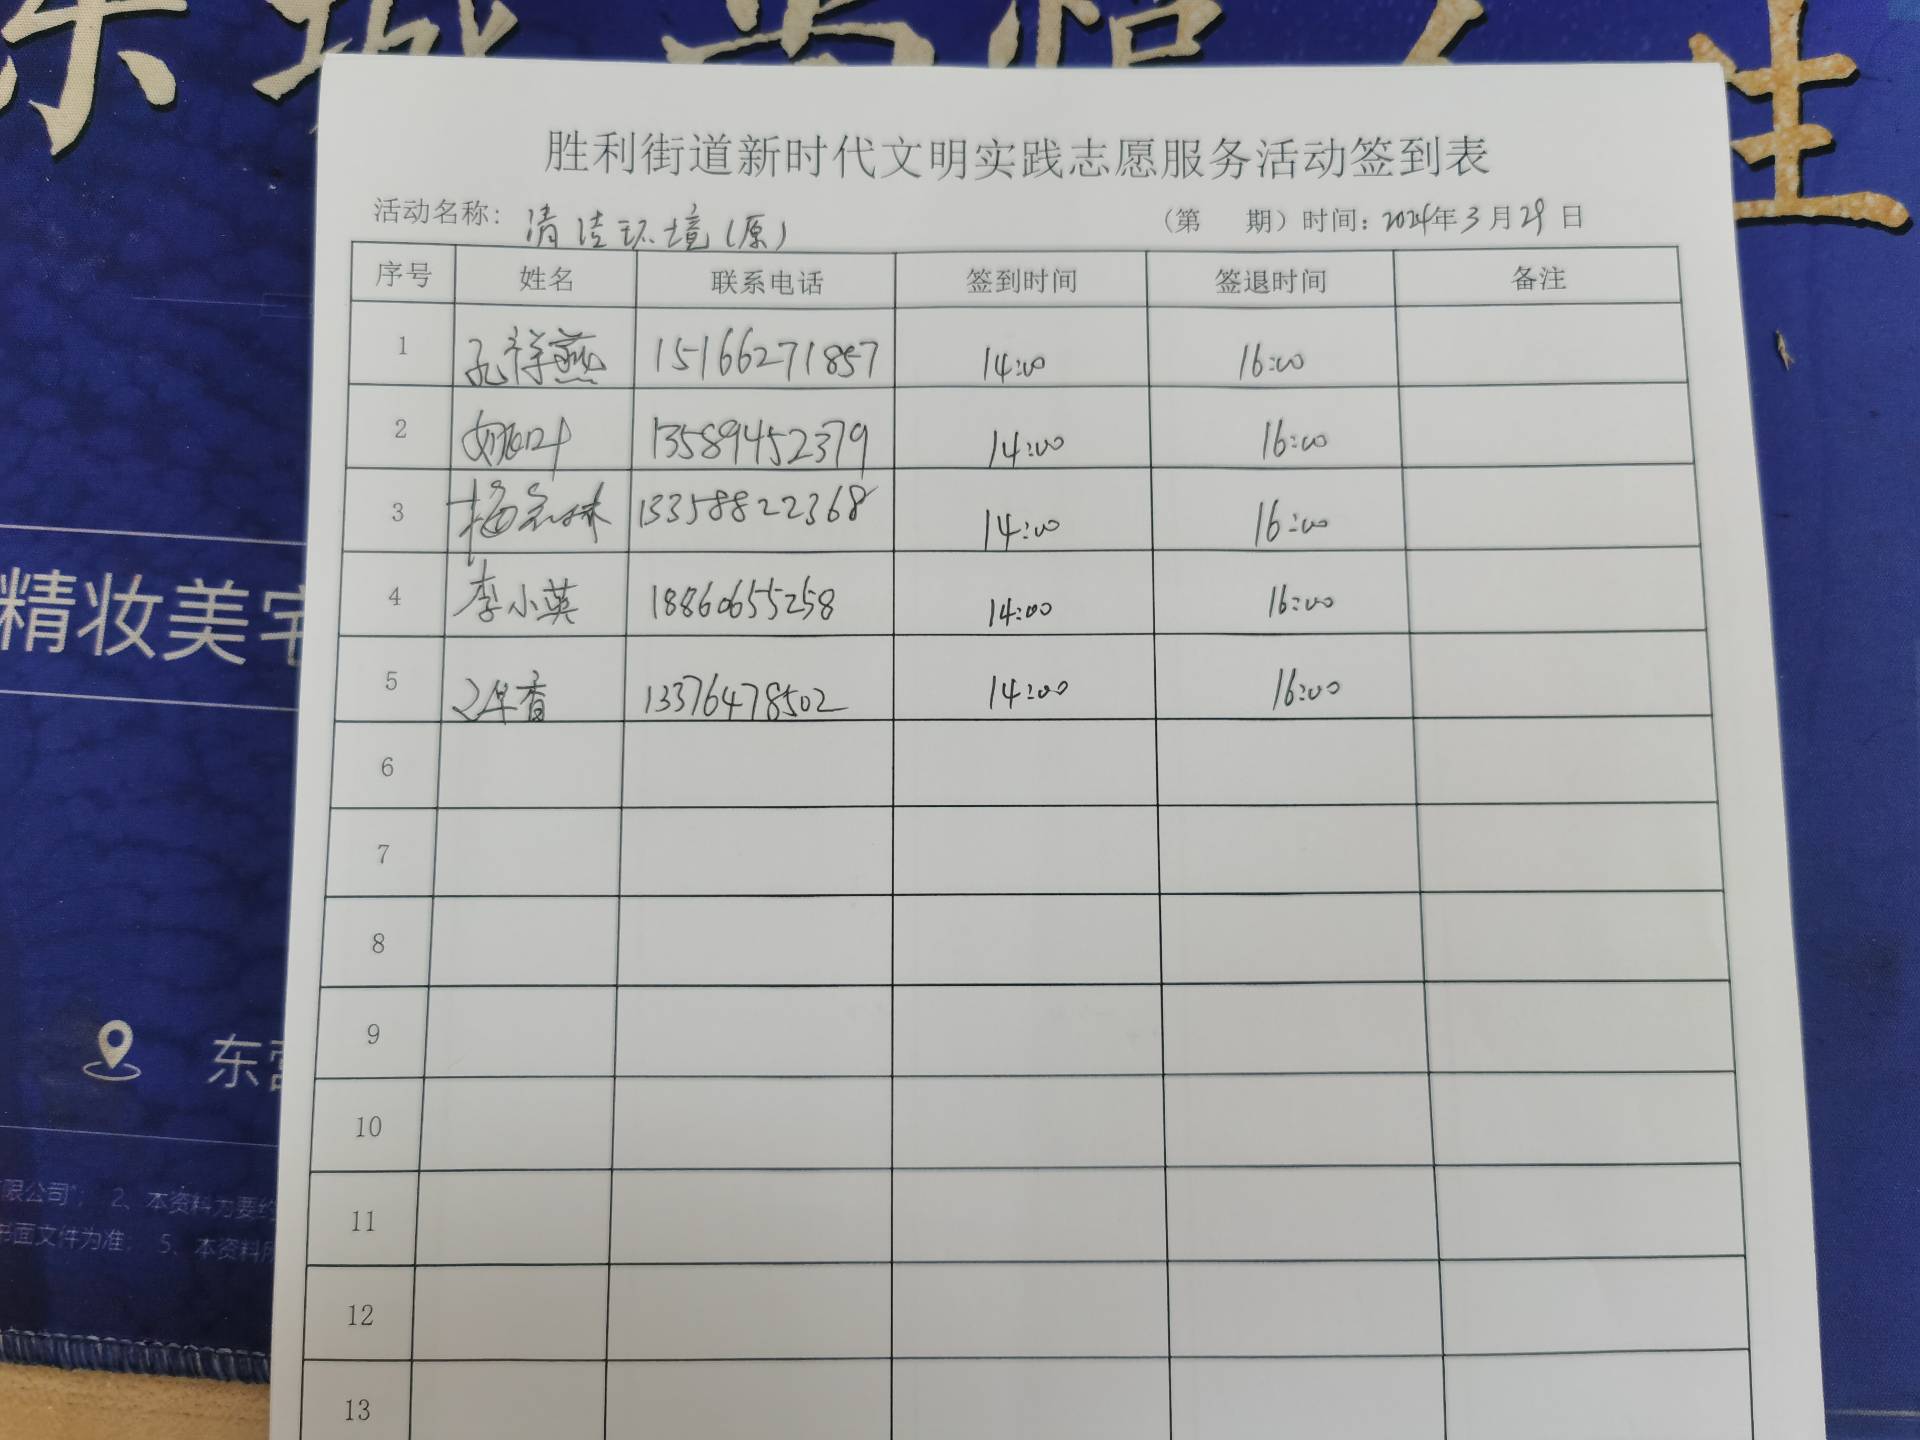 东城
生
胜利街道新时代文明实践志愿服务活动签到表
活动名称： 清洁环境（原） （第 期）时间：2024年3月29日
序号 姓名 联系电话 签到时间 签退时间 备注
1 孔祥燕 15166271857 14:00 16:00
2 姚叶 13589452379 14:00 16:00
3 13358822368 14:00 16:00
4 李小英 18860655258 14:00 16:00
5 13376478502 14:00 16:00
6
7
8
9
10
11
12
13
精妆美宅
东营
限公司”； 2、本资料为要约
书面文件为准； 5、本资料所